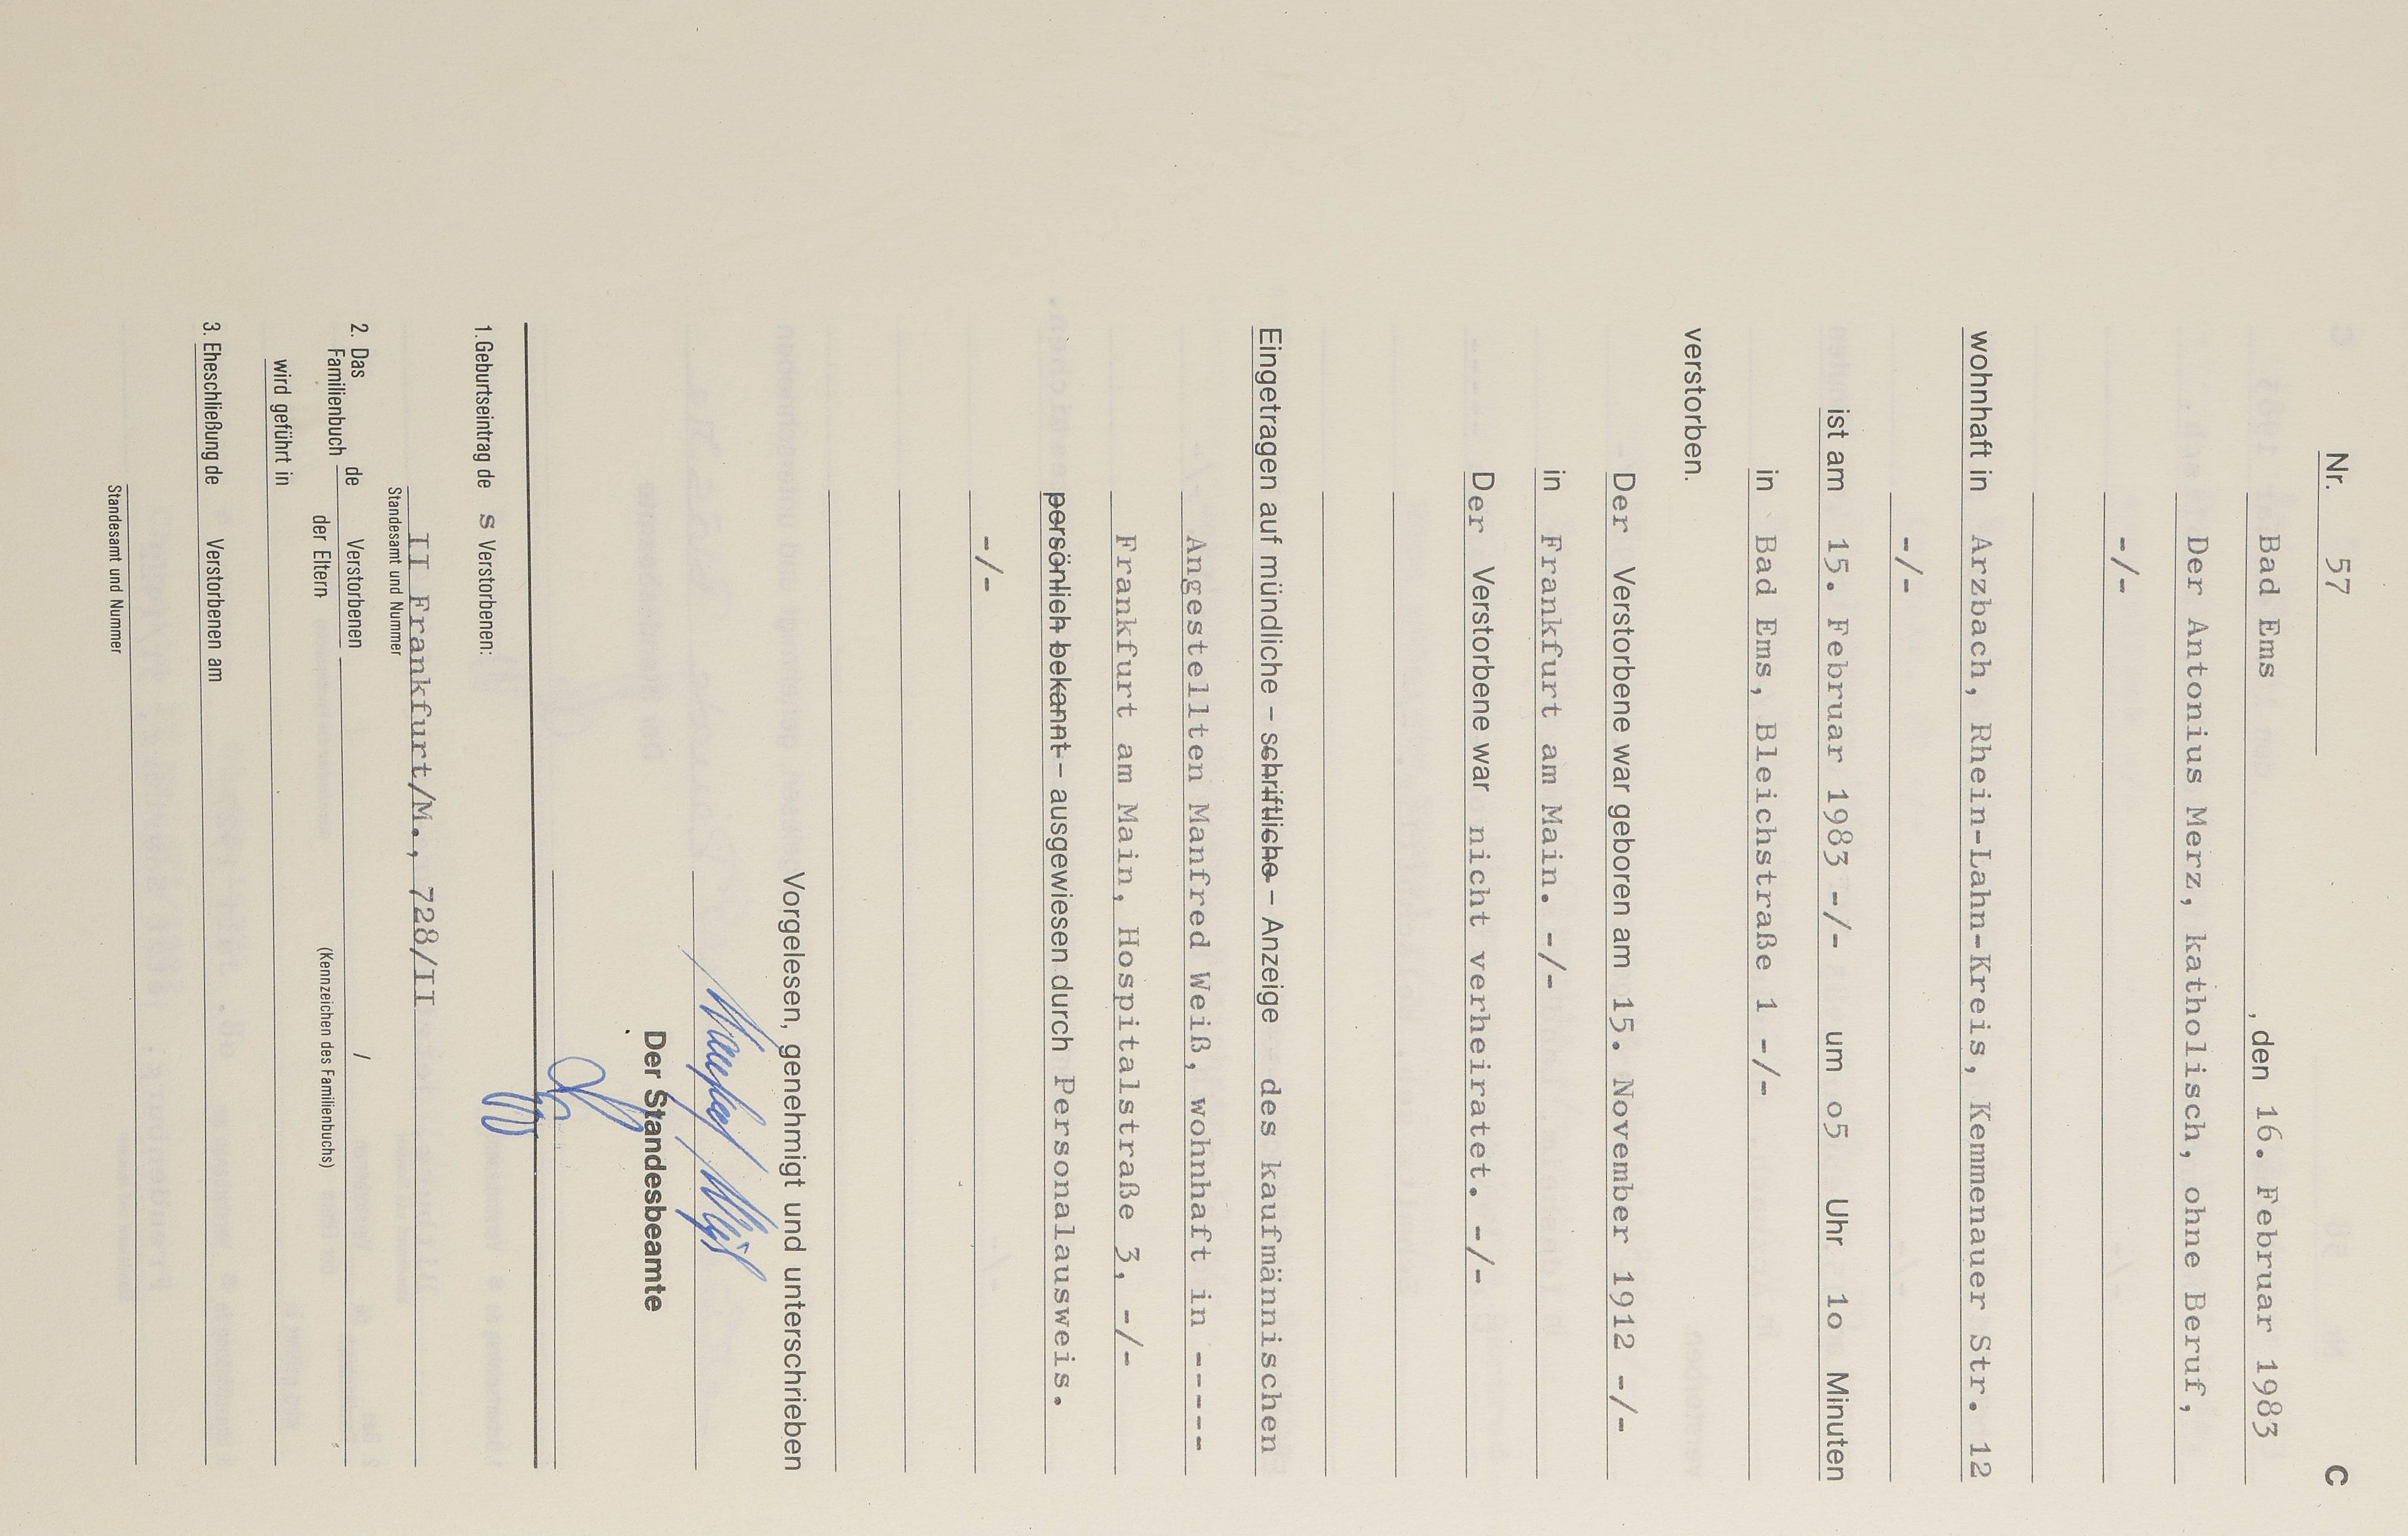 Nr. 57 C
Bad Ems , den 16. Februar 1983
Der Antonius Merz, katholisch, ohne Beruf,
-/-
wohnhaft in Arzbach, Rhein-Lahn-Kreis, Kemmenauer Str. 12
-/-
ist am 15. Februar 1983 -/- um o5 Uhr 1o Minuten
in Bad Ems, Bleichstraße 1 -/-
verstorben.
Der Verstorbene war geboren am 15. November 1912 -/-
in Frankfurt am Main. -/-
Der Verstorbene war nicht verheiratet. -/-
Eingetragen auf mündliche – schriftliche – Anzeige des kaufmännischen
Angestellten Manfred Weiß, wohnhaft in -----
Frankfurt am Main, Hospitalstraße 3, -/-
persönlich bekannt – ausgewiesen durch Personalausweis.
-/-
Vorgelesen, genehmigt und unterschrieben
Manfred Weiß
Der Standesbeamte
1. Geburtseintrag de s Verstorbenen:
II Frankfurt/M., 728/II
Standesamt und Nummer
2. Das Familienbuch de Verstorbenen /
der Eltern (Kennzeichen des Familienbuchs)
wird geführt in
3. Eheschließung de Verstorbenen am
Standesamt und Nummer